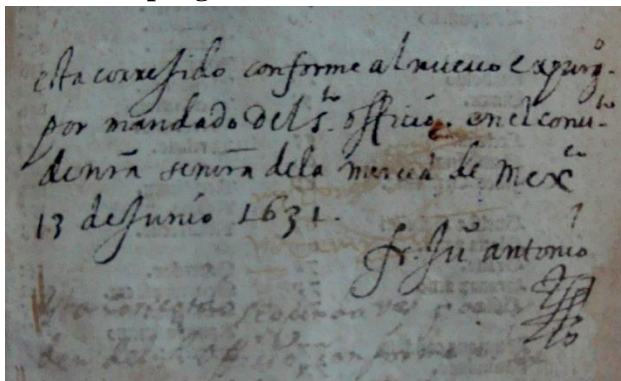 esta corregido conforme al nuevo expurg.º
por mandado del s.to officio. en el conv.to
de nra señora dela merced de Mexco
13 de Junio 1631.
fr. Juº antonio
esta corregido segunda vez por